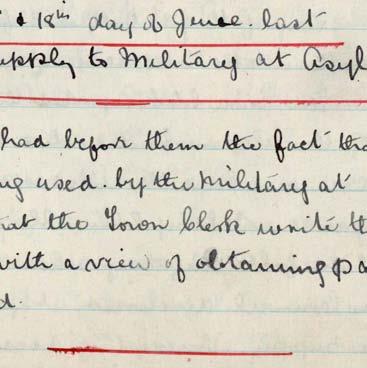 & 18th day of June. last
upply to Military at Asyl
had before them the fact tha
ng used. by the Military at
hat the Town Clerk write th
with a view of obtaining pa
d.